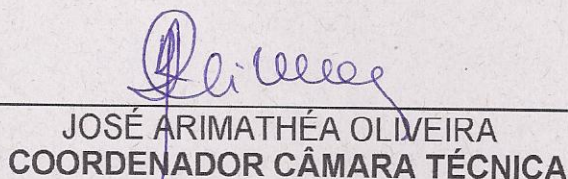 JOSÉ ARIMATHÉA OLIVEIRA
COORDENADOR CÂMARA TÉCNICA